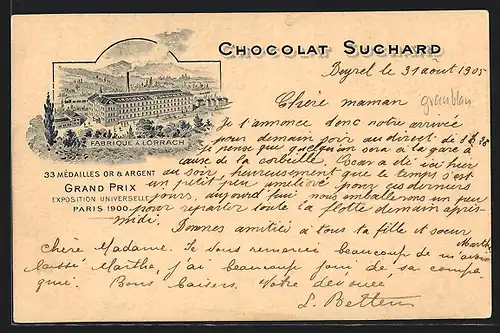 CHOCOLAT SUCHARD
le 31 août 1905
Chère maman
Je t'annonce donc notre arrivée
pour demain soir au direct de 8h
Je pense que quelqu'un sera à la gare à
cause de la corbeille. Oscar a été ici hier
au soir, heureusement que le temps s'est
un petit peu amélioré pour ces derniers
jours, aujourd'hui nous emballerons un peu
pour repartir toute la flotte demain après-
midi.
Bonnes amitiés à tous ta fille et soeur
Marthe
FABRIQUE A LÖRRACH
33 MÉDAILLES OR & ARGENT
GRAND PRIX
EXPOSITION UNIVERSELLE
PARIS 1900
Chère Madame. Je vous remercie beaucoup de m'avoir
laissé Marthe, j'ai beaucoup joui de sa compa-
gnie. Bons baisers. Votre dévouée